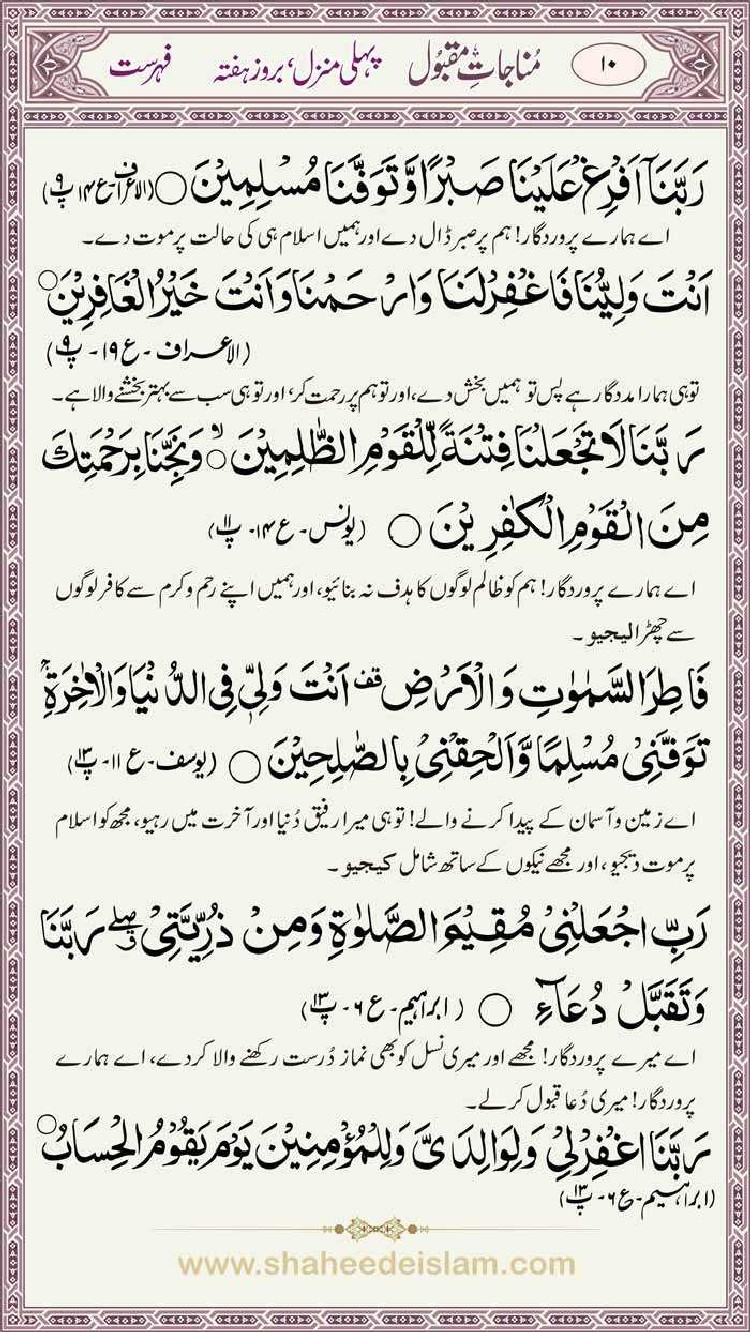 ۱۰ مُناجاتِ مقبُول پہلی منزل، بروز ہفتہ فہرست
رَبَّنَآ اَفْرِغْ عَلَیْنَا صَبْرًا وَّ تَوَفَّنَا مُسْلِمِیْنَ ○ (الاعراف-ع۱۴ پ۹)
اے ہمارے پروردگار! ہم پر صبر ڈال دے اور ہمیں اسلام ہی کی حالت پر موت دے۔
اَنْتَ وَلِیُّنَا فَاغْفِرْلَنَا وَارْحَمْنَا وَاَنْتَ خَیْرُ الْغَافِرِیْنَ ○
(الاعراف - ع ۱۹ - پ۹)
تو ہی ہمارا مددگار ہے پس تو ہمیں بخش دے، اور تو ہم پر رحمت کر، اور تو ہی سب سے بہتر بخشنے والا ہے۔
رَبَّنَا لَا تَجْعَلْنَا فِتْنَةً لِّلْقَوْمِ الظّٰلِمِیْنَ ○ۙ وَنَجِّنَا بِرَحْمَتِكَ
مِنَ الْقَوْمِ الْكٰفِرِیْنَ ○ (یونس- ع۱۴- پ۱۱)
اے ہمارے پروردگار! ہم کو ظالم لوگوں کا ہدف نہ بنائیو، اور ہمیں اپنے رحم و کرم سے کافر لوگوں
سے چھڑا لیجیو۔
فَاطِرَ السَّمٰوٰتِ وَالْاَرْضِ قف اَنْتَ وَلِیّٖ فِی الدُّنْیَا وَالْاٰخِرَةِ ۚ
تَوَفَّنِیْ مُسْلِمًا وَّاَلْحِقْنِیْ بِالصّٰلِحِیْنَ ○ (یوسف- ع ۱۱- پ۱۳)
اے زمین و آسمان کے پیدا کرنے والے! تو ہی میرا رفیق دُنیا اور آخرت میں رہیو، مجھ کو اسلام
پر موت دیجیو، اور مجھے نیکوں کے ساتھ شامل کیجیو۔
رَبِّ اجْعَلْنِیْ مُقِیْمَ الصَّلٰوةِ وَمِنْ ذُرِّیَّتِیْ ۖ رَبَّنَا
وَتَقَبَّلْ دُعَآءِ ○ (ابراہیم- ع ۶- پ۱۳)
اے میرے پروردگار! مجھے اور میری نسل کو بھی نماز دُرست رکھنے والا کر دے، اے ہمارے
پروردگار! میری دُعا قبول کرلے۔
رَبَّنَا اغْفِرْلِیْ وَلِوَالِدَیَّ وَلِلْمُؤْمِنِیْنَ یَوْمَ یَقُوْمُ الْحِسَابُ ○
(ابراہیم- ع ۶- پ۱۳)
www.shaheedeislam.com